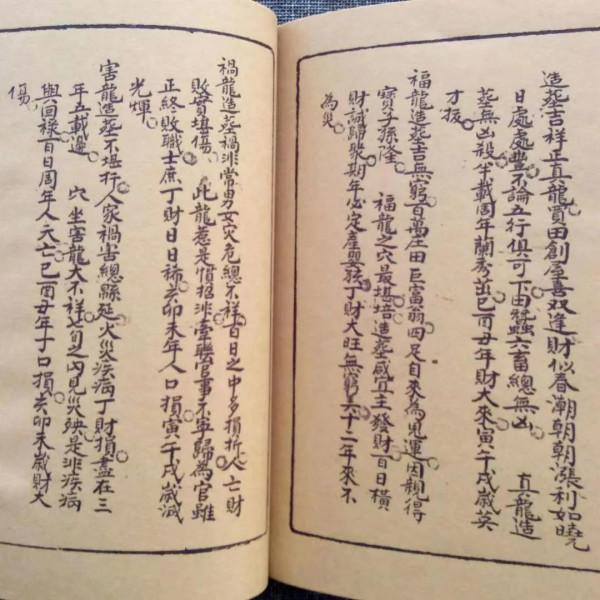 造塟吉祥正真龍買田創屋喜双逢財似春潮朝朝漲利如曉
日處處豐不論五行俱可下田蠶六畜總無凶　真龍造
塟無凶殺半載周年蘭秀出巳酉丑年財大來寅午戌歲英
才拔
福龍造塟吉無窮百萬庄田巨富翁四足自來為兇運因親得
寶子孫隆　福龍之穴最堪培造塟咸宜主發財百日橫
財誠歸聚期年必定產嬰孩丁財大旺無窮六十二年來不
為災
禍龍造塟禍非常男女灾危總不祥百日之中多損折人亡財
敗實堪傷　此龍惹是慣招非牽聯官事不寧歸為官雖
正終敗職士庶丁財日日稀亥卯未年人口損寅午戌歲減
光輝
害龍造塟不堪行人家禍害總縣延火災疾病丁財損盡在三
年五載邊　穴坐害龍大不祥七旬之內見災殃是非疾病
與回祿百日周年人亡巳酉丑年子口損亥卯未歲財大
傷